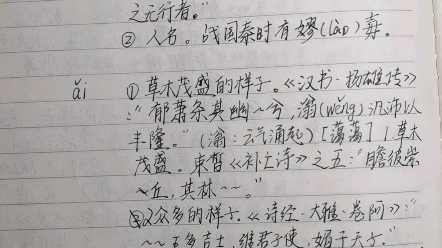 之无行者。”
② 人名。战国秦时有嫪(lào)毐。
ǎi ① 草木茂盛的样子。《汉书·扬雄传》
：“郁萧条其幽~兮，滃(wěng)汎沛以
丰隆。”(滃：云气涌起)[蔼蔼]1草木
茂盛。束皙《补亡诗》之五：“瞻彼崇
丘，其林~~。”
②又众多的样子。《诗经·大雅·卷阿》：“
~~王多吉士，维君子使，媚于天子。”